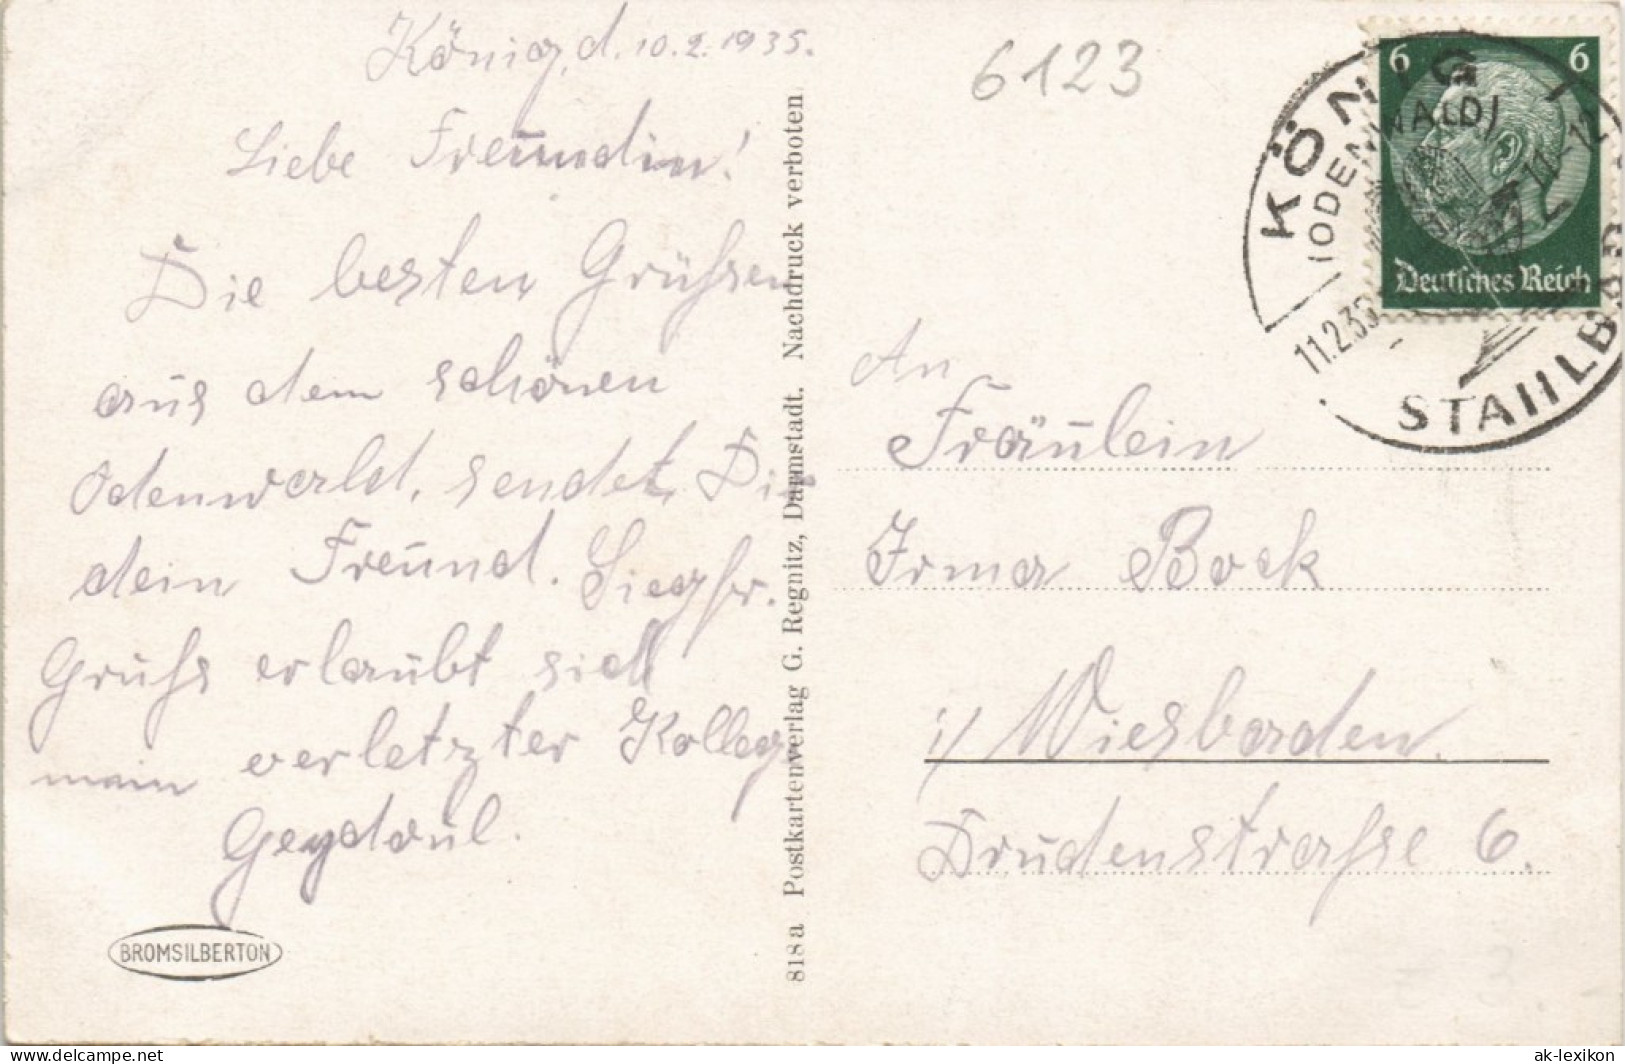 König, d. 10.2.1935.
Liebe Freundin!
Die besten Grüssen
aus dem schönen
Odenwald, sendet Dir
dein Freund. Siegfr.
Gruß erlaubt sich
mein verletzter Kollege
6123
An
Fräulein
Irma Bock
i/ Wiesbaden.
Drudenstraße 6.
6 6
Deutsches Reich
KÖNIG
(ODENWALD)
11.2.35
11-12
STAHLBAD
818 a Postkartenverlag G. Regnitz, Darmstadt. Nachdruck verboten
BROMSILBERTON
www.delcampe.net
ak-lexikon